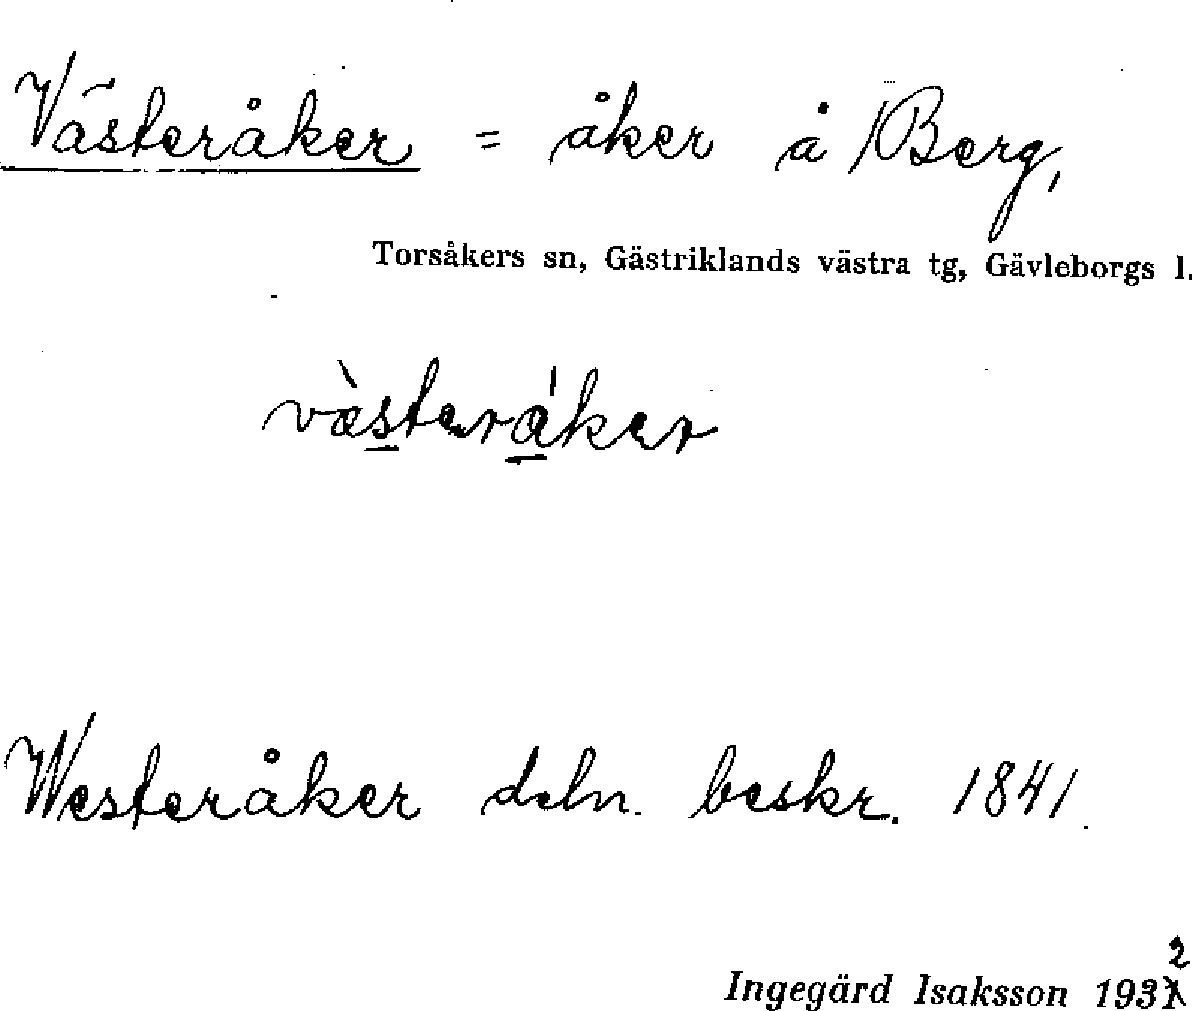 Västeråker = åker å Berg,
Torsåkers sn, Gästriklands västra tg, Gävleborgs l.
væ̀steråker
Westeråker deln. beskr. 1841.
Ingegärd Isaksson 1932